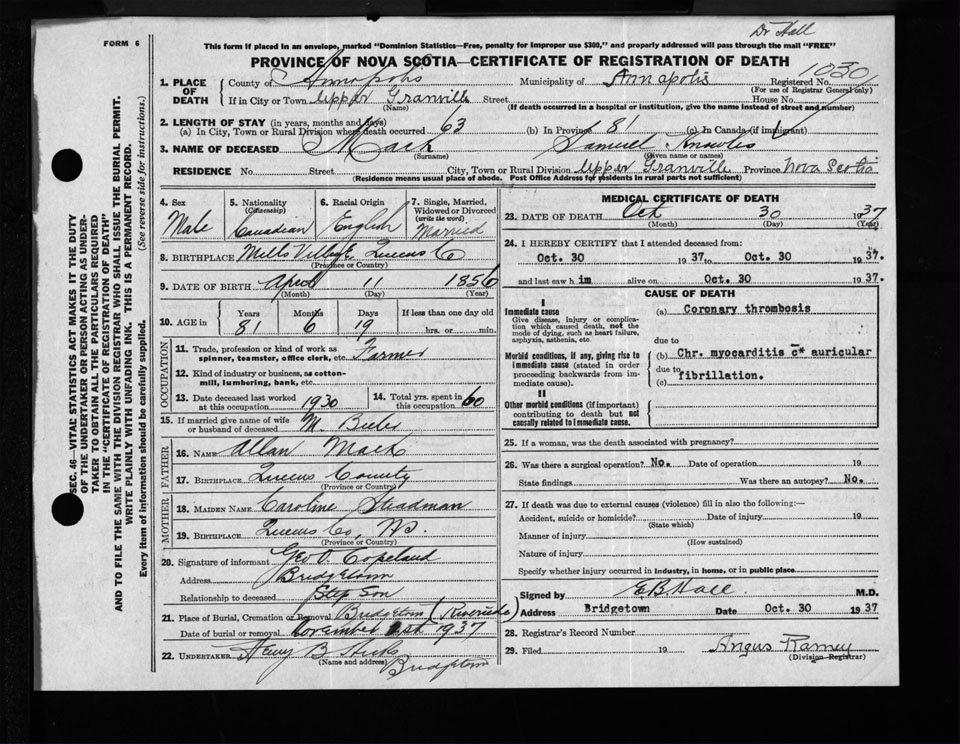 Dr Hall
FORM 6
This form if placed in an envelope, marked "Dominion Statistics—Free, penalty for improper use $300," and properly addressed will pass through the mail "FREE"
PROVINCE OF NOVA SCOTIA—CERTIFICATE OF REGISTRATION OF DEATH
1. PLACE OF DEATH
County of Annapolis Municipality of Annapolis Registered No.
(For use of Registrar General only)
If in City or Town Upper Granville Street House No.
(Name) (If death occurred in a hospital or institution, give the name instead of street and number)
2. LENGTH OF STAY (in years, months and days)
(a) In City, Town or Rural Division where death occurred 63 (b) In Province 81 (c) In Canada (if immigrant)
3. NAME OF DECEASED Mack Samuel Knowles
(Surname) (Given name or names)
RESIDENCE No. Street City, Town or Rural Division Upper Granville Province Nova Scotia
(Residence means usual place of abode. Post Office Address for residents in rural parts not sufficient)
SEC. 46—VITAL STATISTICS ACT MAKES IT THE DUTY
OF THE UNDERTAKER OR PERSON ACTING AS UNDER-
TAKER TO OBTAIN ALL THE PARTICULARS REQUIRED
IN THE "CERTIFICATE OF REGISTRATION OF DEATH"
AND TO FILE THE SAME WITH THE DIVISION REGISTRAR WHO SHALL ISSUE THE BURIAL PERMIT.
WRITE PLAINLY WITH UNFADING INK. THIS IS A PERMANENT RECORD.
Every item of information should be carefully supplied. (See reverse side for instructions.)
4. Sex
Male
5. Nationality
(Citizenship)
Canadian
6. Racial Origin
English
7. Single, Married, Widowed or Divorced
(write the word)
Married
8. BIRTHPLACE Mills Village Queens Co
(Province or Country)
9. DATE OF BIRTH April 11 1856
(Month) (Day) (Year)
10. AGE in
Years Months Days If less than one day old
81 6 19 hrs. or min.
OCCUPATION
11. Trade, profession or kind of work as spinner, teamster, office clerk, etc. Farmer
12. Kind of industry or business, as cotton-mill, lumbering, bank, etc.
13. Date deceased last worked at this occupation 1930
14. Total yrs. spent in this occupation 60
15. If married give name of wife or husband of deceased M.
FATHER
16. NAME Allan Mack
17. BIRTHPLACE Queens County
(Province or Country)
MOTHER
18. MAIDEN NAME Caroline Steadman
19. BIRTHPLACE Queens Co, NS.
(Province or Country)
20. Signature of informant Geo O. Copeland
Address Bridgetown
Relationship to deceased Step Son
21. Place of Burial, Cremation or Removal Bridgetown (Riverside)
Date of burial or removal November 1st 1937
22. UNDERTAKER Henry B Hicks
(Name and address) Bridgetown
MEDICAL CERTIFICATE OF DEATH
23. DATE OF DEATH Oct 30 1937
(Month) (Day) (Year)
24. I HEREBY CERTIFY that I attended deceased from:
Oct. 30 1937 to Oct. 30 1937.
and last saw him alive on Oct. 30 1937.
CAUSE OF DEATH
I
Immediate cause
Give disease, injury or complication which caused death, not the mode of dying, such as heart failure, asphyxia, asthenia, etc.
(a) Coronary thrombosis
due to
Morbid conditions, if any, giving rise to immediate cause (stated in order proceeding backwards from immediate cause).
(b) Chr. myocarditis c̄* auricular
due to fibrillation.
(c)
II
Other morbid conditions (if important) contributing to death but not causally related to immediate cause.
25. If a woman, was the death associated with pregnancy?
26. Was there a surgical operation? No. Date of operation 19
State findings Was there an autopsy? No.
27. If death was due to external causes (violence) fill in also the following:—
Accident, suicide or homicide? Date of injury 19
(State which)
Manner of injury
(How sustained)
Nature of injury
Specify whether injury occurred in industry, in home, or in public place
Signed by E B Hall M.D.
Address Bridgetown Date Oct. 30 1937
28. Registrar's Record Number
29. Filed 19 Angus Ramey
(Division Registrar)